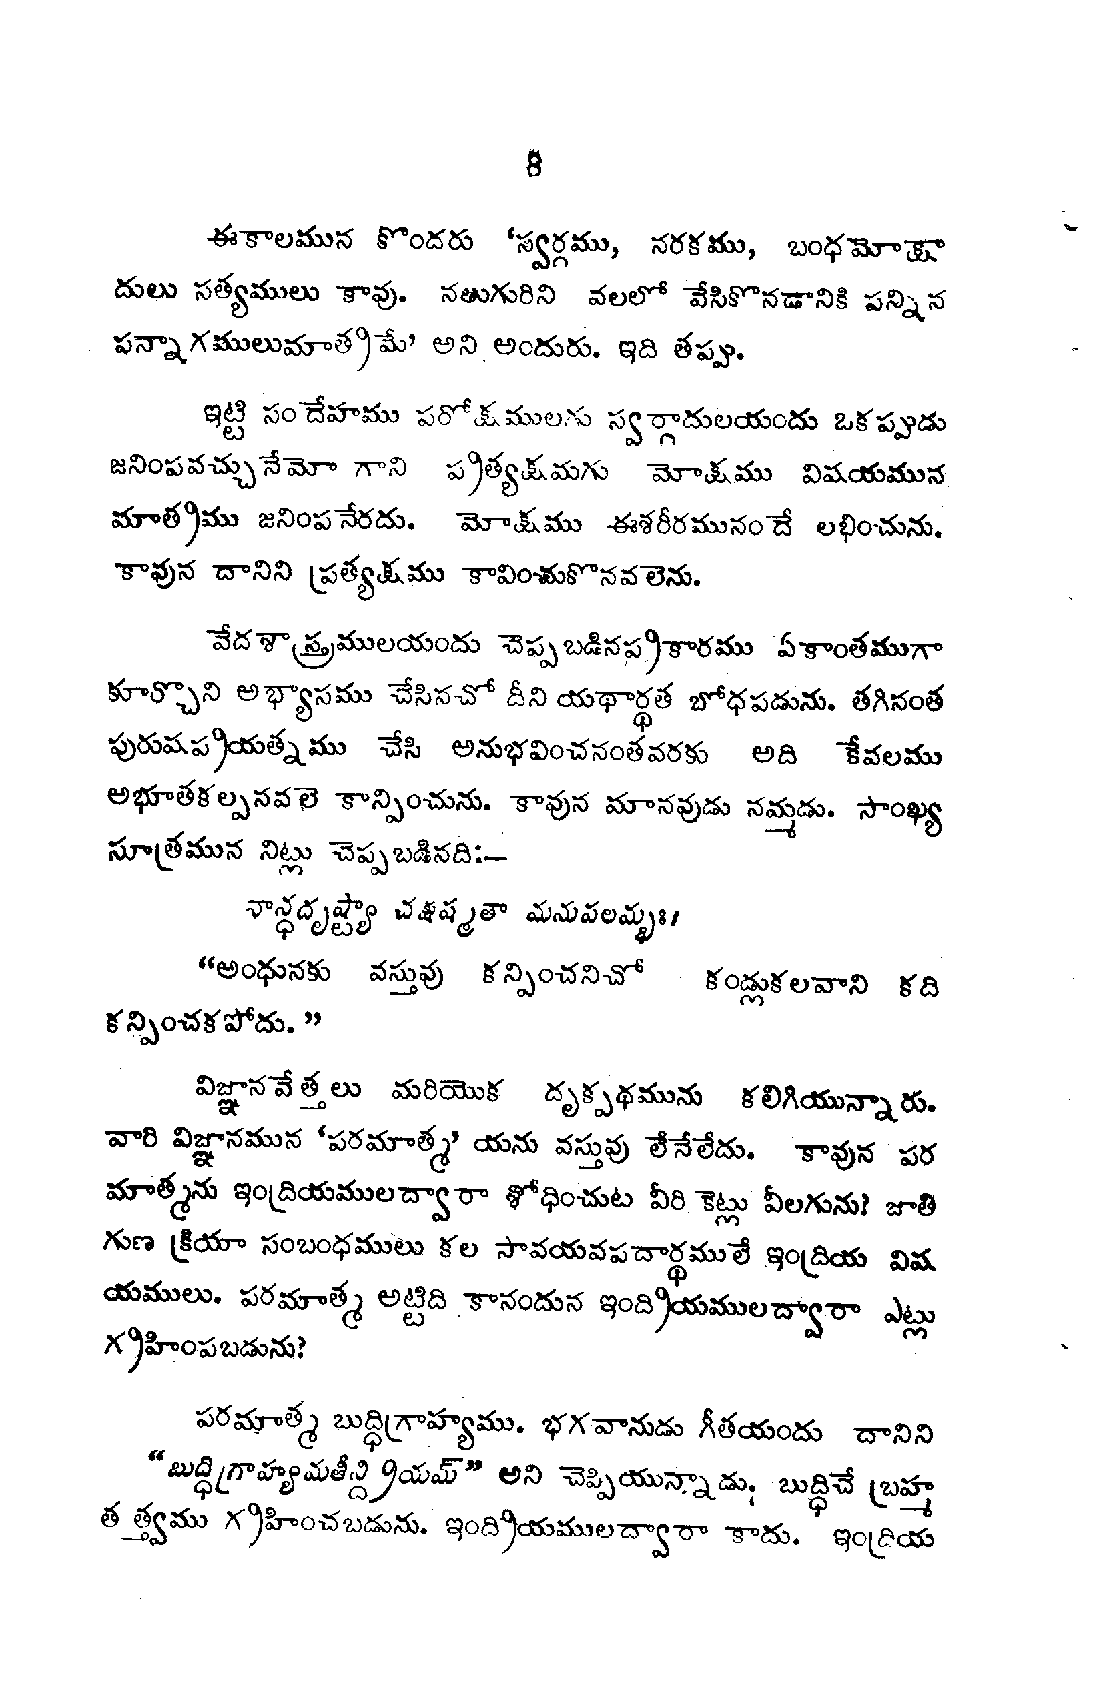 8
ఈకాలమున కొందరు ‘స్వర్గము, నరకము, బంధమోక్షా
దులు సత్యములు కావు. నలుగురిని వలలో వేసికొనడానికి పన్నిన
పన్నాగములుమాత్రమే’ అని అందురు. ఇది తప్పు.
ఇట్టి సందేహము పరోక్షములగు స్వర్గాదులయందు ఒకప్పుడు
జనింపవచ్చునేమో గాని ప్రత్యక్షమగు మోక్షము విషయమున
మాత్రము జనింపనేరదు. మోక్షము ఈశరీరమునందే లభించును.
కావున దానిని ప్రత్యక్షము కావించుకొనవలెను.
వేదశాస్త్రములయందు చెప్పబడినప్రకారము ఏకాంతముగా
కూర్చొని అభ్యాసము చేసినచో దీని యథార్థత బోధపడును. తగినంత
పురుషప్రయత్నము చేసి అనుభవించనంతవరకు అది కేవలము
అభూతకల్పనవలె కాన్పించును. కావున మానవుడు నమ్మడు. సాంఖ్య
సూత్రమున నిట్లు చెప్పబడినది:—
నాన్ధదృష్ట్యా చక్షుష్మతా మనుపలమ్భః।
“అంధునకు వస్తువు కన్పించనిచో కండ్లుకలవాని కది
కన్పించకపోదు.”
విజ్ఞానవేత్తలు మరియొక దృక్పథమును కలిగియున్నారు.
వారి విజ్ఞానమున ‘పరమాత్మ’ యను వస్తువు లేనేలేదు. కావున పర
మాత్మను ఇంద్రియములద్వారా శోధించుట వీరి కెట్లు వీలగును? జాతి
గుణ క్రియా సంబంధములు కల సావయవపదార్థములే ఇంద్రియ విష
యములు. పరమాత్మ అట్టిది కానందున ఇంద్రియములద్వారా ఎట్లు
గ్రహింపబడును?
పరమాత్మ బుద్ధిగ్రాహ్యము. భగవానుడు గీతయందు దానిని
“బుద్ధిగ్రాహ్యమతీన్ద్రియమ్” అని చెప్పియున్నాడు; బుద్ధిచే బ్రహ్మ
తత్త్వము గ్రహించబడును. ఇంద్రియములద్వారా కాదు. ఇంద్రియ